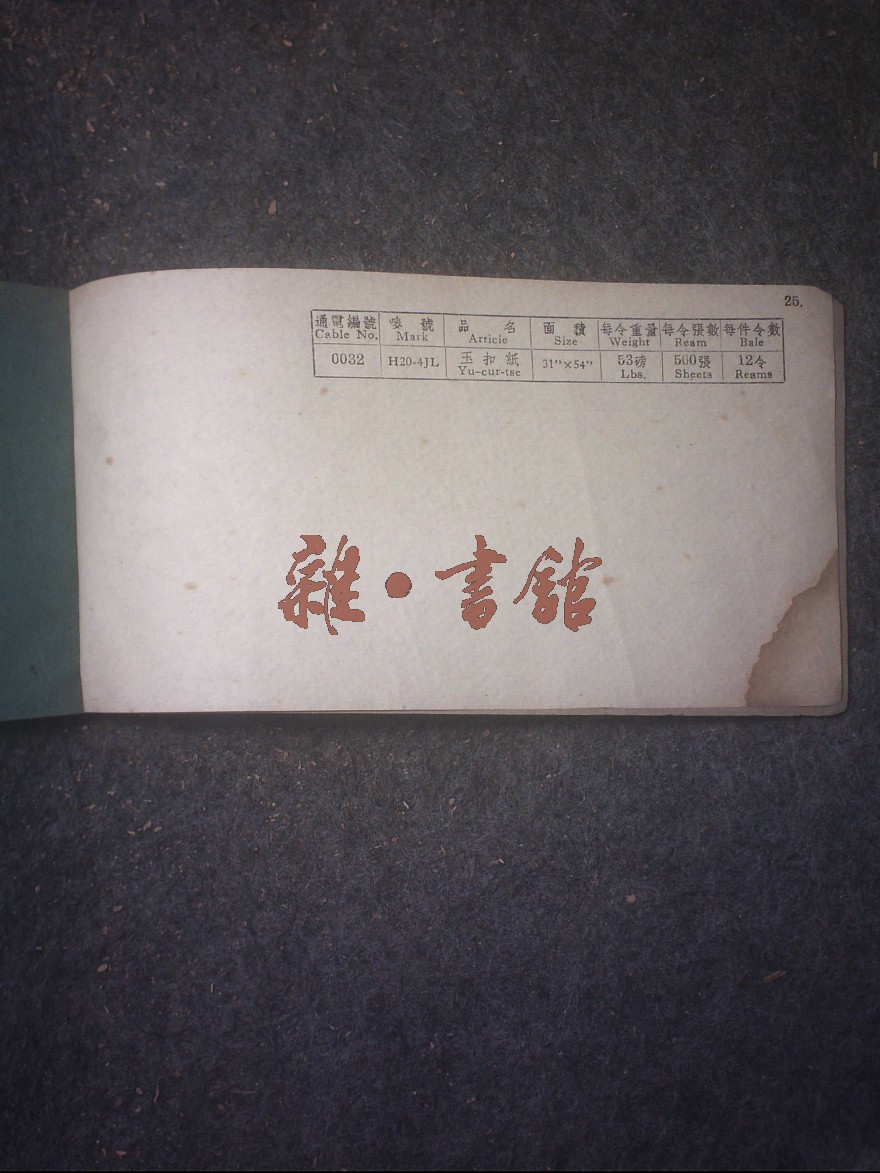 25.
通電編號 嘜號 品名 面積 每令重量 每令張數 每件令數
Cable No. Mark Article Size Weight Ream Bale
0032 H20-4JL 玉扣紙 31"×54" 53磅 500張 12令
Yu-cur-tse Lbs. Sheets Reams
雜•書館